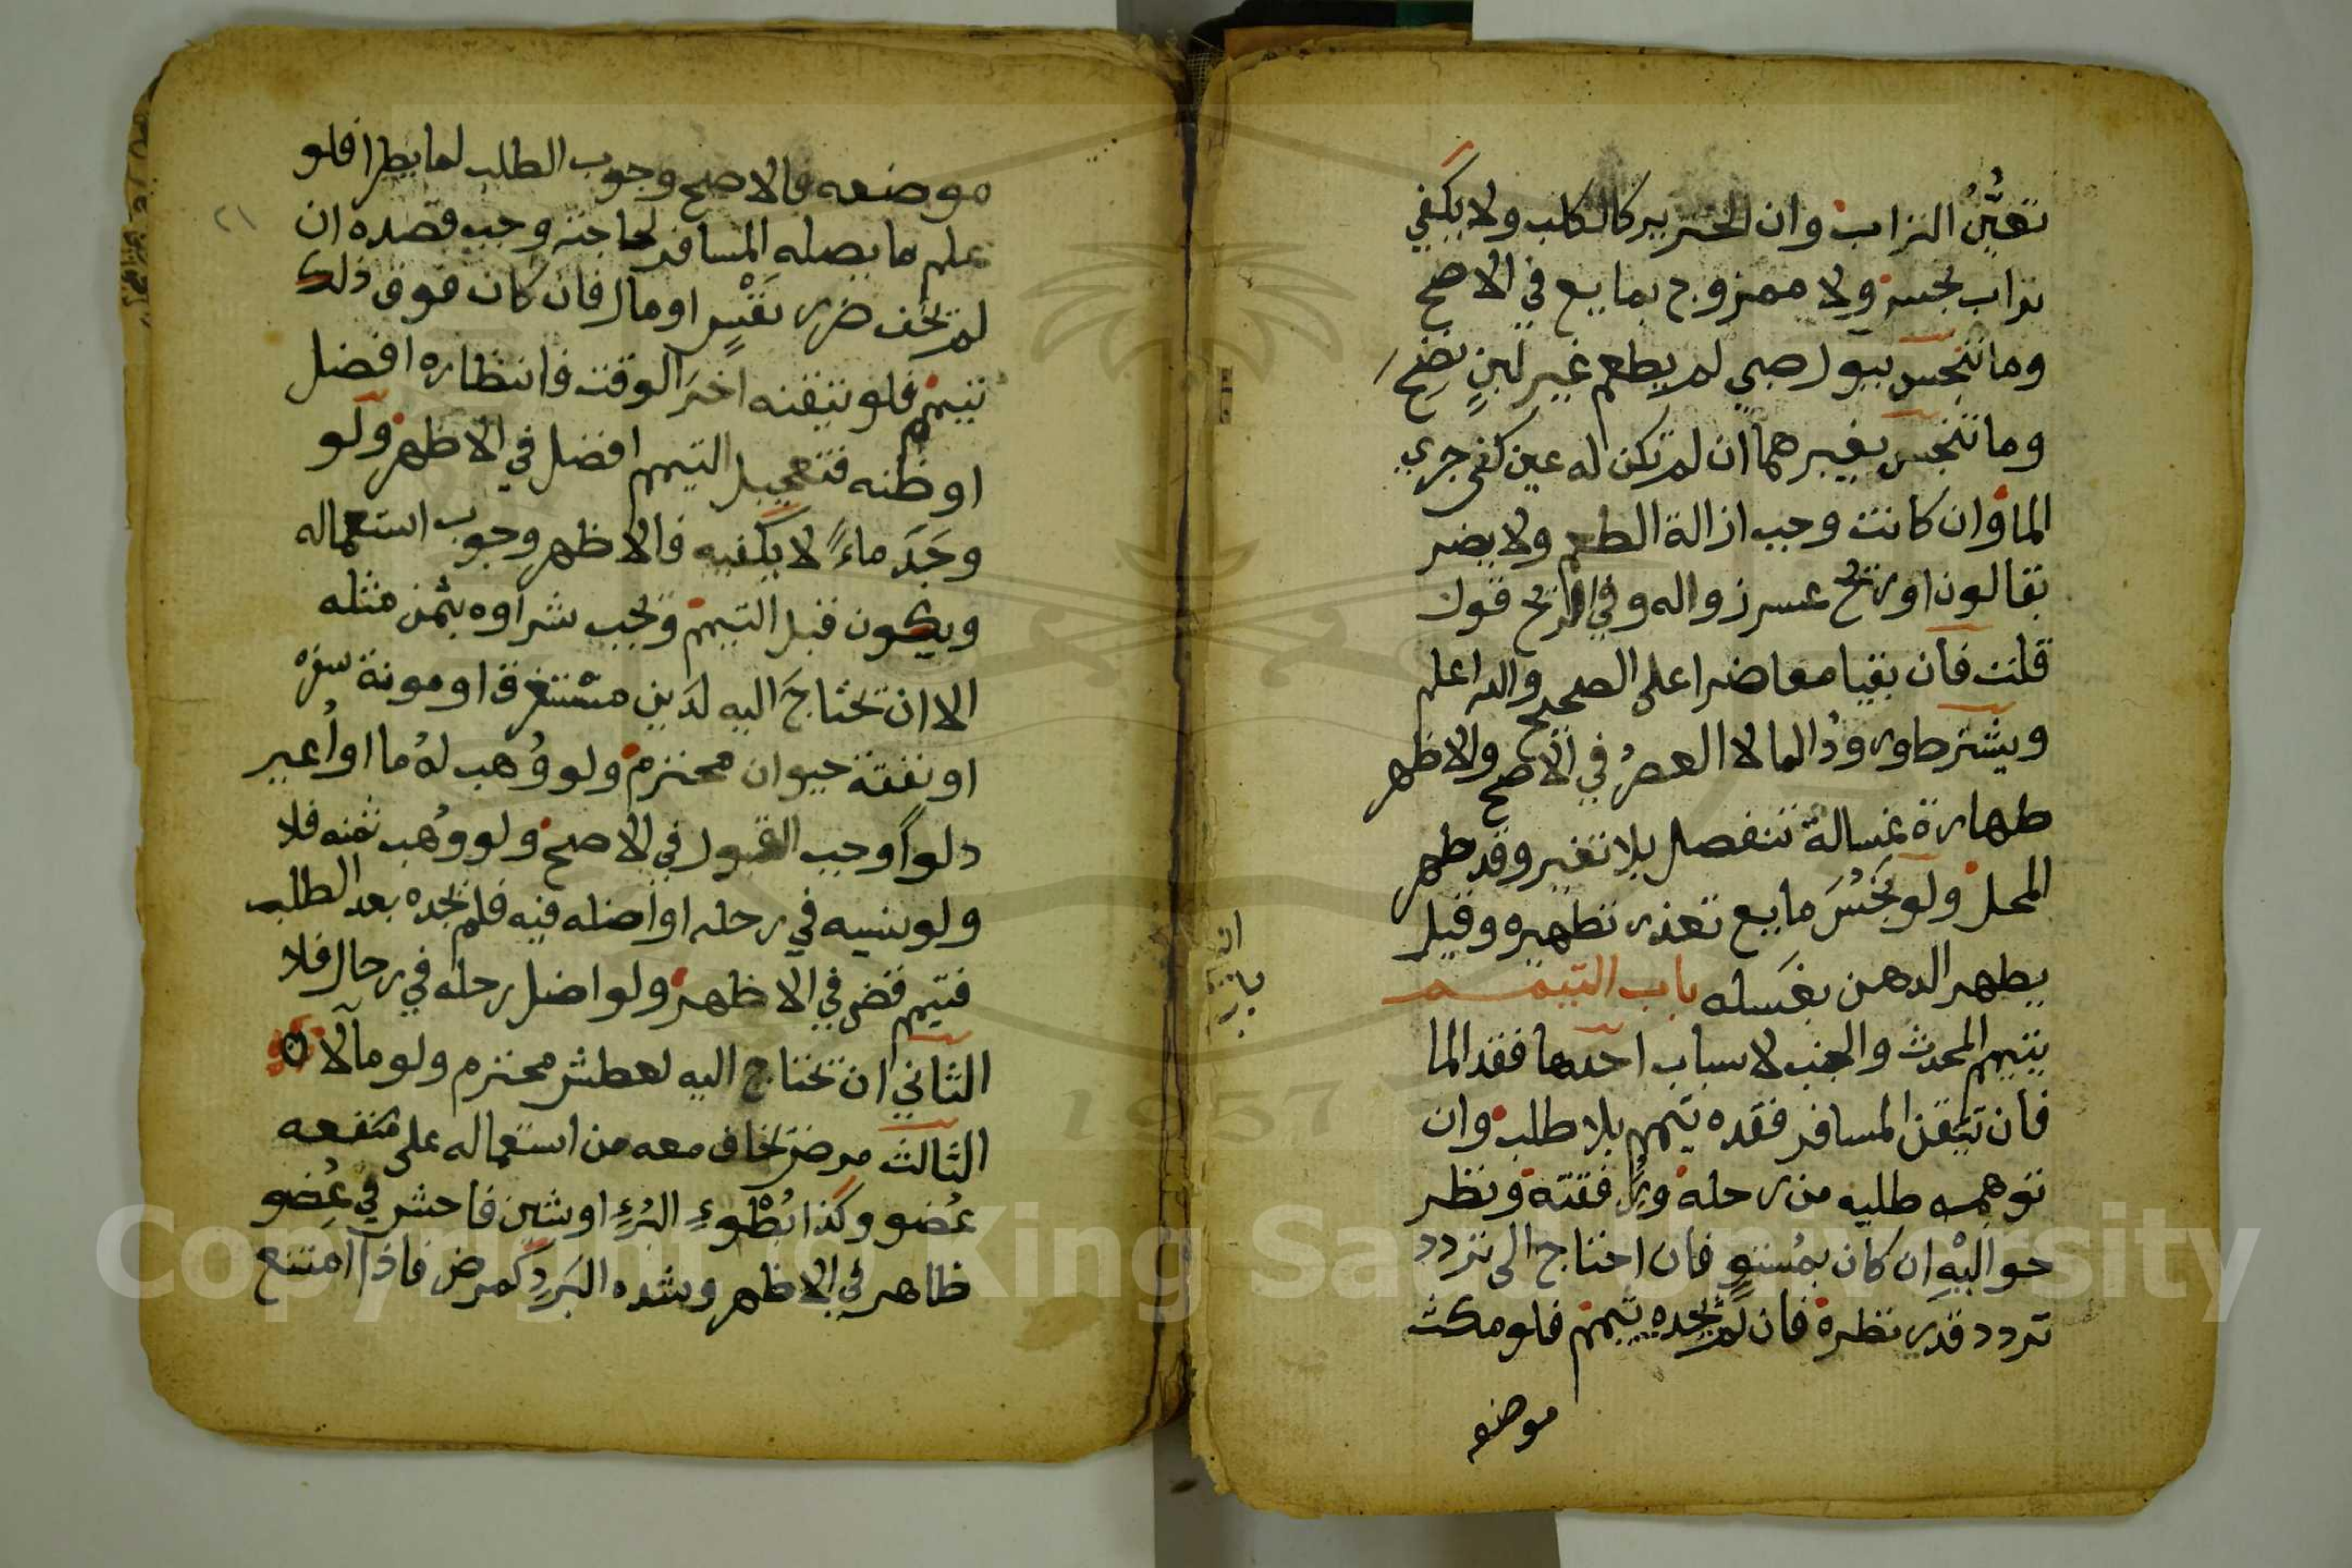 تعيُّنُ التراب وان الخنزير كالكلب ولا يكفي
تراب نجس ولا ممزوج بمايع في الاصح
وما تنجس ببول صبي لم يطعم غير لبنٍ نضح
وما تنجس بغيرهما ان لم تكن له عين كفى جري
الما وان كانت وجب ازالة الطعم ولا يضر
بقا لون او ريح عسر زواله وفي الريح قول
قلت فان بقيا معا ضرا على الصحيح والله اعلم
ويشترط ورودُ الما لا العصرُ في الاصح والاظهر
طهارة غسالة تنفصل بلا تغير وقد طهر
المحل ولو نَجُسَ مايع تعذر تطهيره وقيل
يطهر الدهن بغسله باب التيمم
يتيمم المحدث والجنب لاسباب احدها فقد الما
فان تيقن المسافر فقده تيمم بلا طلب وان
توهمه طلبه من رحله ورفقته ونظر
حواليْهِ ان كان بمُستوٍ فان احتاج الى تردد
تردد قدر نظره فان لم يجده تيمم فلو مكث
موضعه
٢١
موضعه فالاصح وجوب الطلب لما يطرا فلو
علم ما يصله المسافر لحاجته وجب قصده ان
لم يخف ضرر نفْسٍ او مال فان كان فوق ذلك
تيمم فلو تيقنه اخرَ الوقت فانتظاره افضل
او ظنه فتعجيل التيمم افضل في الاظهر ولو
وجَدَ ماءً لا يكفيه فالاظهر وجوب استعماله
ويكون قبل التيمم ويجب شراوه بثمن مثله
الا ان يحتاجَ اليه لدَين مستغرق او مونة سفره
او نفقة حيوان محترم ولو وُهب لهُ ما او اُعير
دلواً وجب القبول في الاصح ولو وُهب ثمنه فلا
ولو نسيه في رحله او اضله فيه فلم يجده بعد الطلب
فتيمم قضى في الاظهر ولو اضل رحله في رحال فلا
الثاني ان يحتاج اليه لعطش محترم ولو مآلا
الثالث مرض يخاف معه من استعماله على منفعه
عُضو وكذا بُطْوءِ البُرءِ او شين فاحش في عُضو
ظاهر في الاظهر وشده البَردِ كمرض فاذا امتنع
Copyright © King Saud University
1957